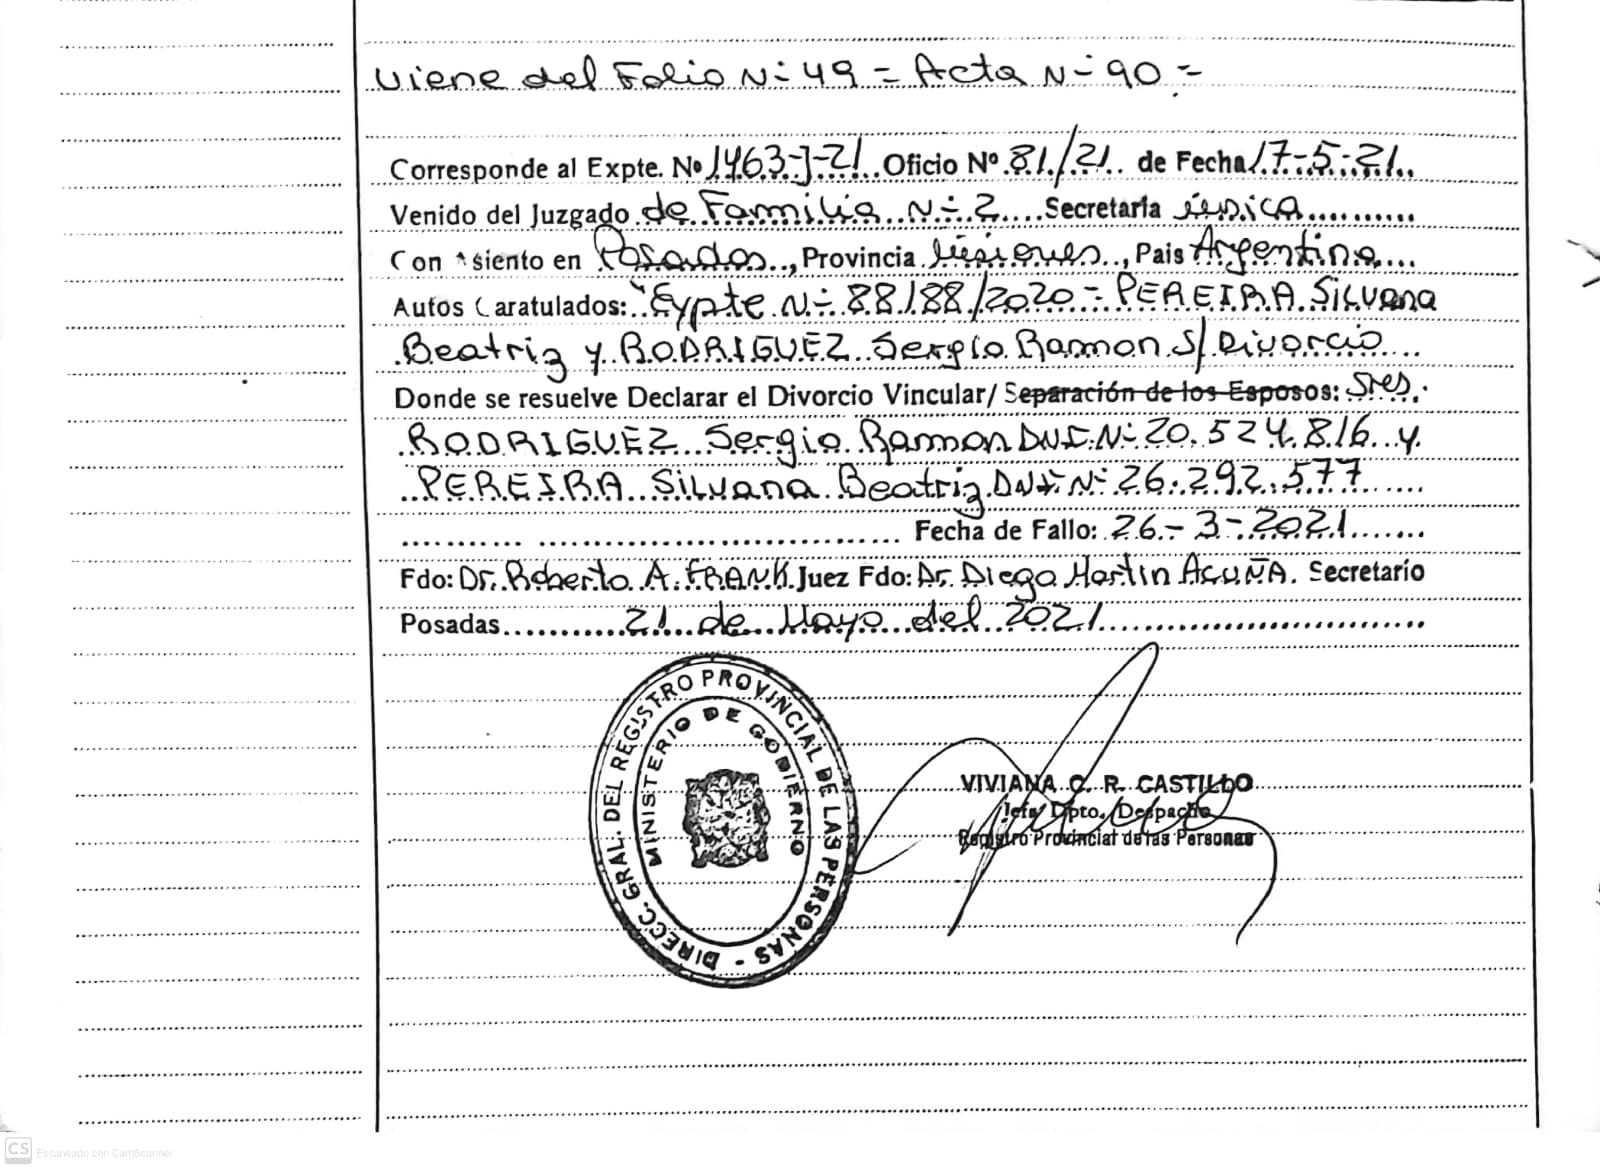 Viene del Folio N- 49 = Acta N- 90 =
Corresponde al Expte. Nº 1463-J-21 Oficio Nº 81/21 de Fecha 17-5-21
Venido del Juzgado de Familia N- 2 Secretaría única
Con Asiento en Posadas, Provincia Misiones, Pais Argentina
Autos Caratulados: "Expte N- 88188/2020 - PEREIRA Silvana
Beatriz y RODRIGUEZ Sergio Ramon S/ Divorcio
Donde se resuelve Declarar el Divorcio Vincular/ Separación de los Esposos: Sres.
RODRIGUEZ Sergio Ramon DNI N- 20.524.816 y
PEREIRA Silvana Beatriz DNI N- 26.292.577
Fecha de Fallo: 26-3-2021
Fdo: Dr. Roberto A. FRANK Juez Fdo: Dr. Diego Martin ACUÑA. Secretario
Posadas 21 de Mayo del 2021
DIRECC. GRAL. DEL REGISTRO PROVINCIAL DE LAS PERSONAS -
MINISTERIO DE GOBIERNO
VIVIANA C. R. CASTILLO
Jefa Dpto. Despacho
Registro Provincial de las Personas
CS Escaneado con CamScanner